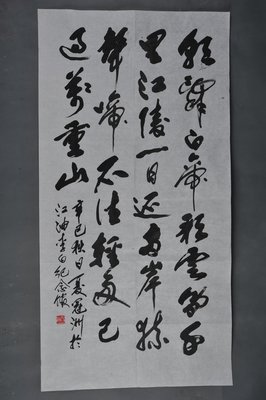 朝辭白帝彩雲間千
里江陵一日還兩岸猿
聲啼不住輕舟已
過萬重山
辛巳秋日夏冠洲於
江油李白纪念館